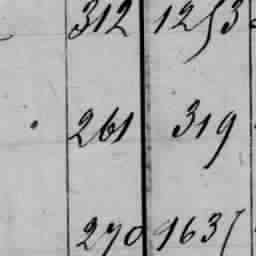 312 1253
261 319
270 1635